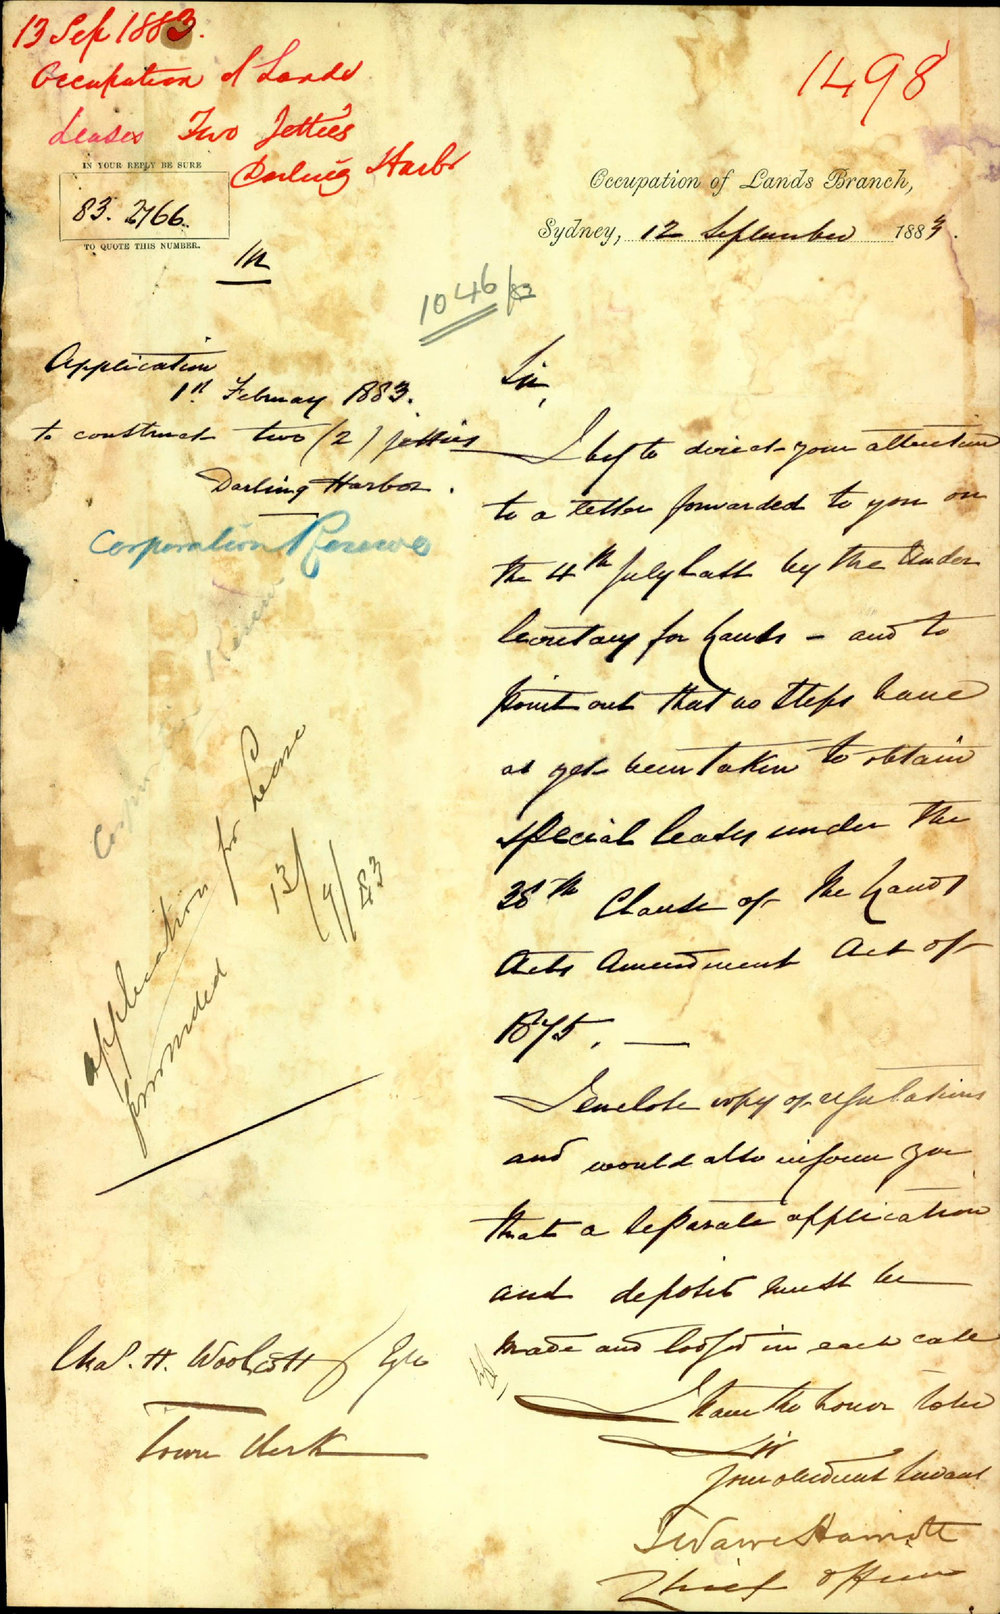 13 Sep 1883.
Occupation of Lands
Leases Two Jetties
Darling Harbr
1498
IN YOUR REPLY BE SURE
83. 2766.
TO QUOTE THIS NUMBER.
Occupation of Lands Branch,
Sydney, 12 September 1883.
1046/83
Application
1st February 1883.
to construct two (2) jetties
Darling Harbor.
Corporation Reserve
Sir,
I beg to direct your attention
to a letter forwarded to you on
the 4th July last by the Under
Secretary for Lands - and to
point out that no steps have
as yet been taken to obtain
special leases under the
28th Clause of the Lands
Acts Amendment Act of
1875.
I enclose copy of regulations
and would also inform you
that a separate application
and deposit must be
made and lodged in each case
I have the honor to be
Sir
Your obedient Servant
Chief Officer
application for Lease
forwarded
13/9/83
Chas. H. Woolcott Esqre
Town Clerk